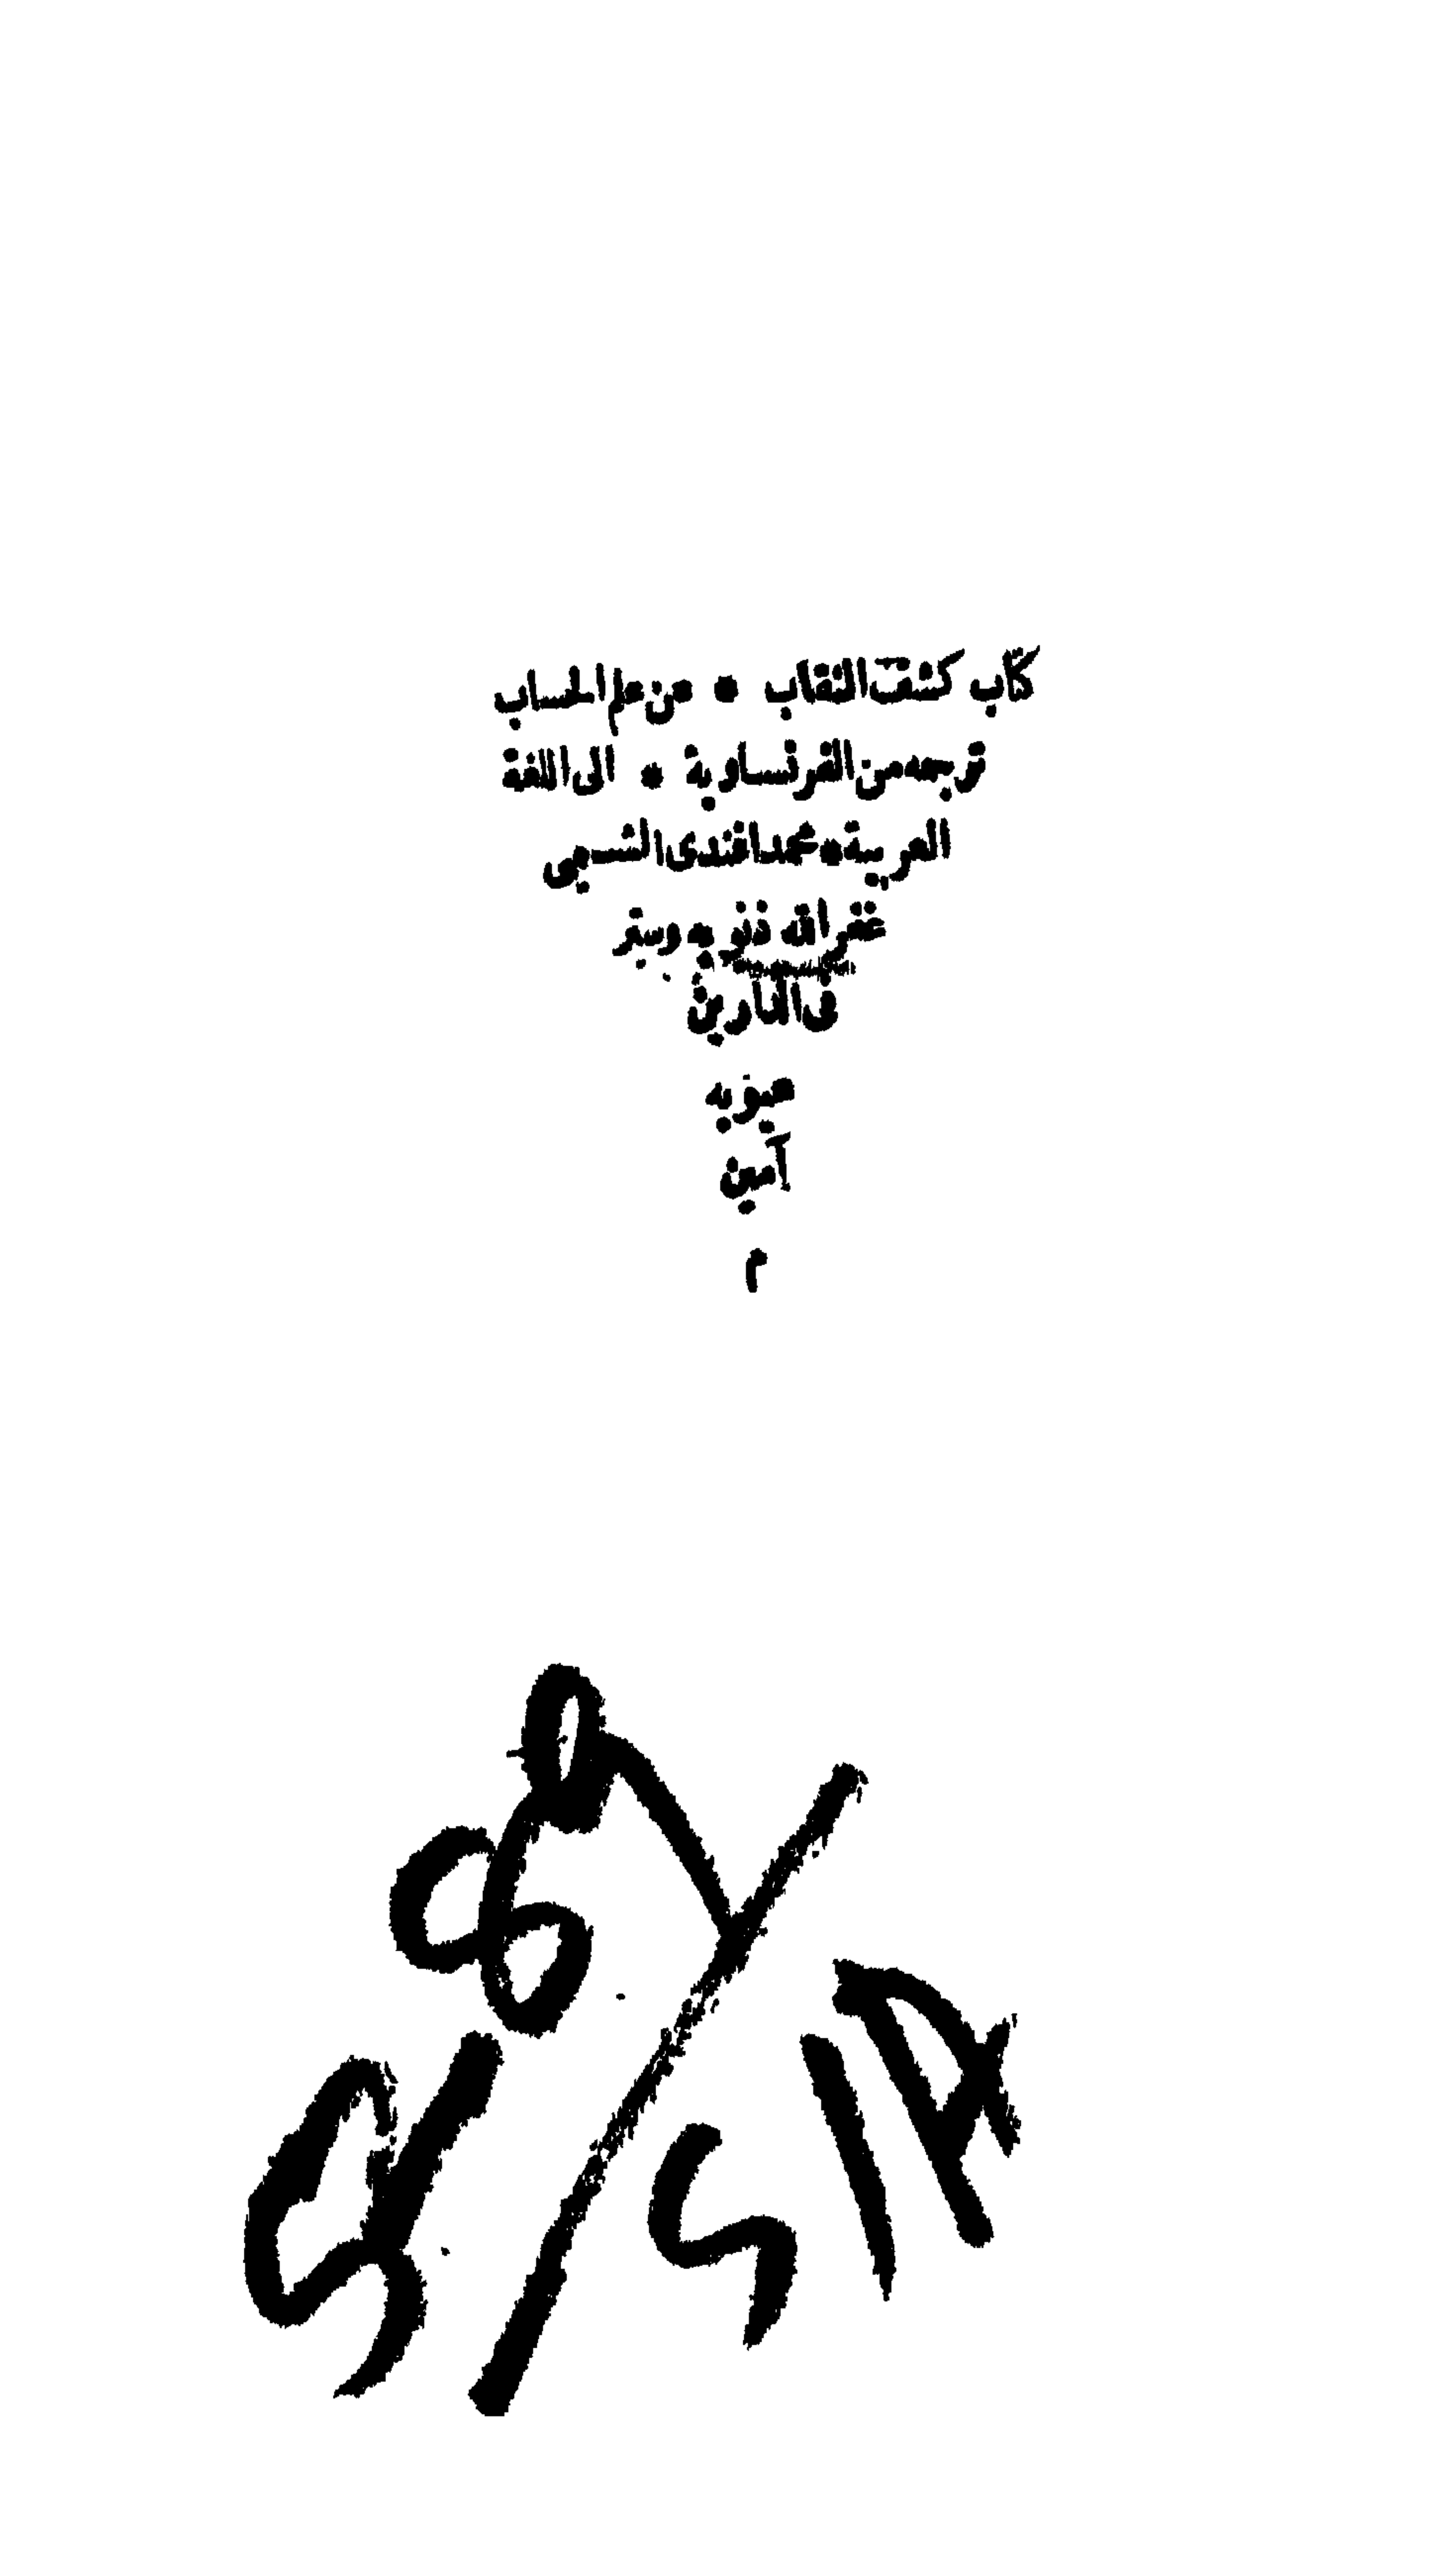 كتاب كشف النقاب * عن علم الحساب
ترجمه من الفرنساوية * الى اللغة
العربية * محمد افندى الشسيمى
غفر الله ذنوبه وستر
فى الدارين
عيوبه
آمين
م